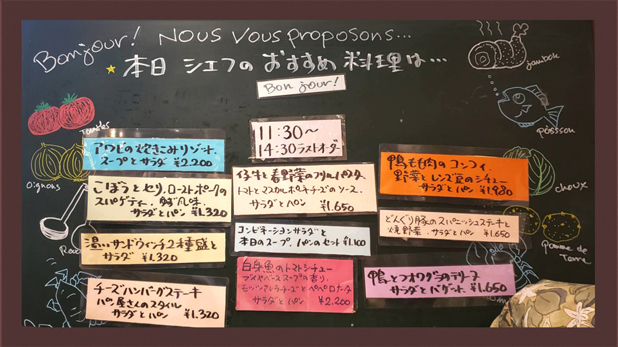 Bonjour! Nous Vous proposons...
★本日 シェフの おすすめ 料理は...
Bonjour!
jambon
Poisson
Tomates
Oignons
choux
Pomme de
Terre
アワビの炊きこみリゾット
スープとサラダ ¥2.200
11:30～
14:30ラストオーダー
鴨もも肉のコンフィ
野菜とレンズ豆のシチュー
サラダとパン ¥1.980
ごぼうとセリ、ローストポークの
スパゲティー
サラダとパン ¥1.320
仔牛と春野菜の
トマトとマスカルポーネチーズのソース
サラダとパン ¥1.650
どんぐり豚のスパニッシュステーキと
焼野菜 サラダとパン ¥1.650
コンビネーションサラダと
本日のスープ、パンのセット ¥1.100
温いサンドウィッチ2種盛と
サラダ ¥1.320
白身魚のトマトシチュー
サラダとパン ¥2.200
鴨とフォワグラのテリーヌ
サラダとバゲット ¥1.650
チーズハンバーグステーキ
パン屋さんのスタイル
サラダとパン ¥1.320